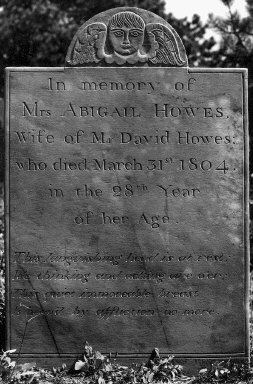 In memory of
Mrs ABIGAIL HOWES,
Wife of Mr David Howes;
who died March 31st 1804.
in the 28th Year
of her Age.
This languishing head is at rest,
Its thinking and aking are o'er;
This quiet immoveable breast
Is heav'd by affliction no more.